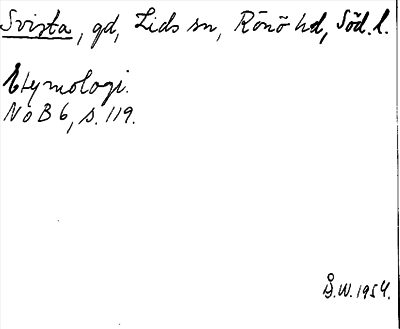 Svista, gd, Lids sn, Rönö hd, Söd. l.
Etymologi.
NoB 6, s. 119.
Å.W. 1954.